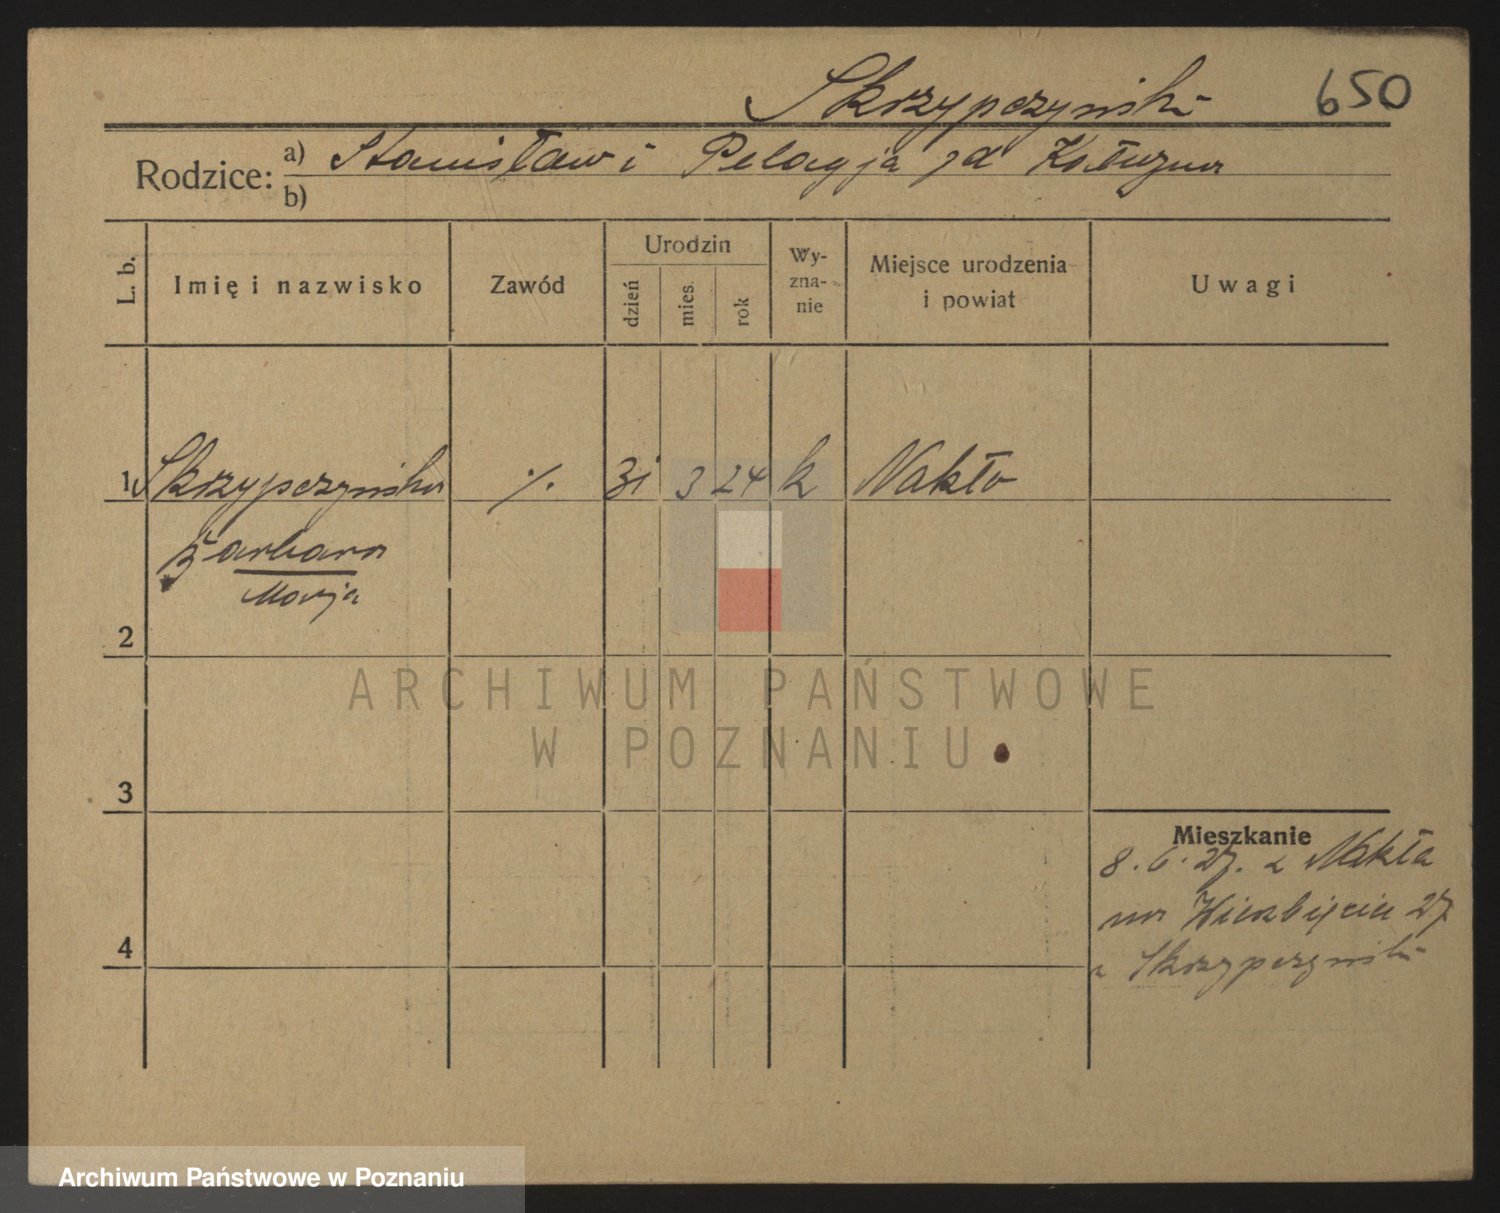 Skrzypczyński 650
Rodzice: a) Stanisław i Pelagja zd Kałużna
b)
L. b. Imię i nazwisko Zawód Urodzin dzień mies. rok Wy-zna-nie Miejsce urodzenia i powiat Uwagi
1 Skrzypczyńska ·/. 31 3 24 k Nakło
Barbara
Marja
2
ARCHIWUM PAŃSTWOWE
W POZNANIU
3
Mieszkanie
8.6.27. z Nakła
na Wierzbięcice 27
4
Skrzypczyński
Archiwum Państwowe w Poznaniu